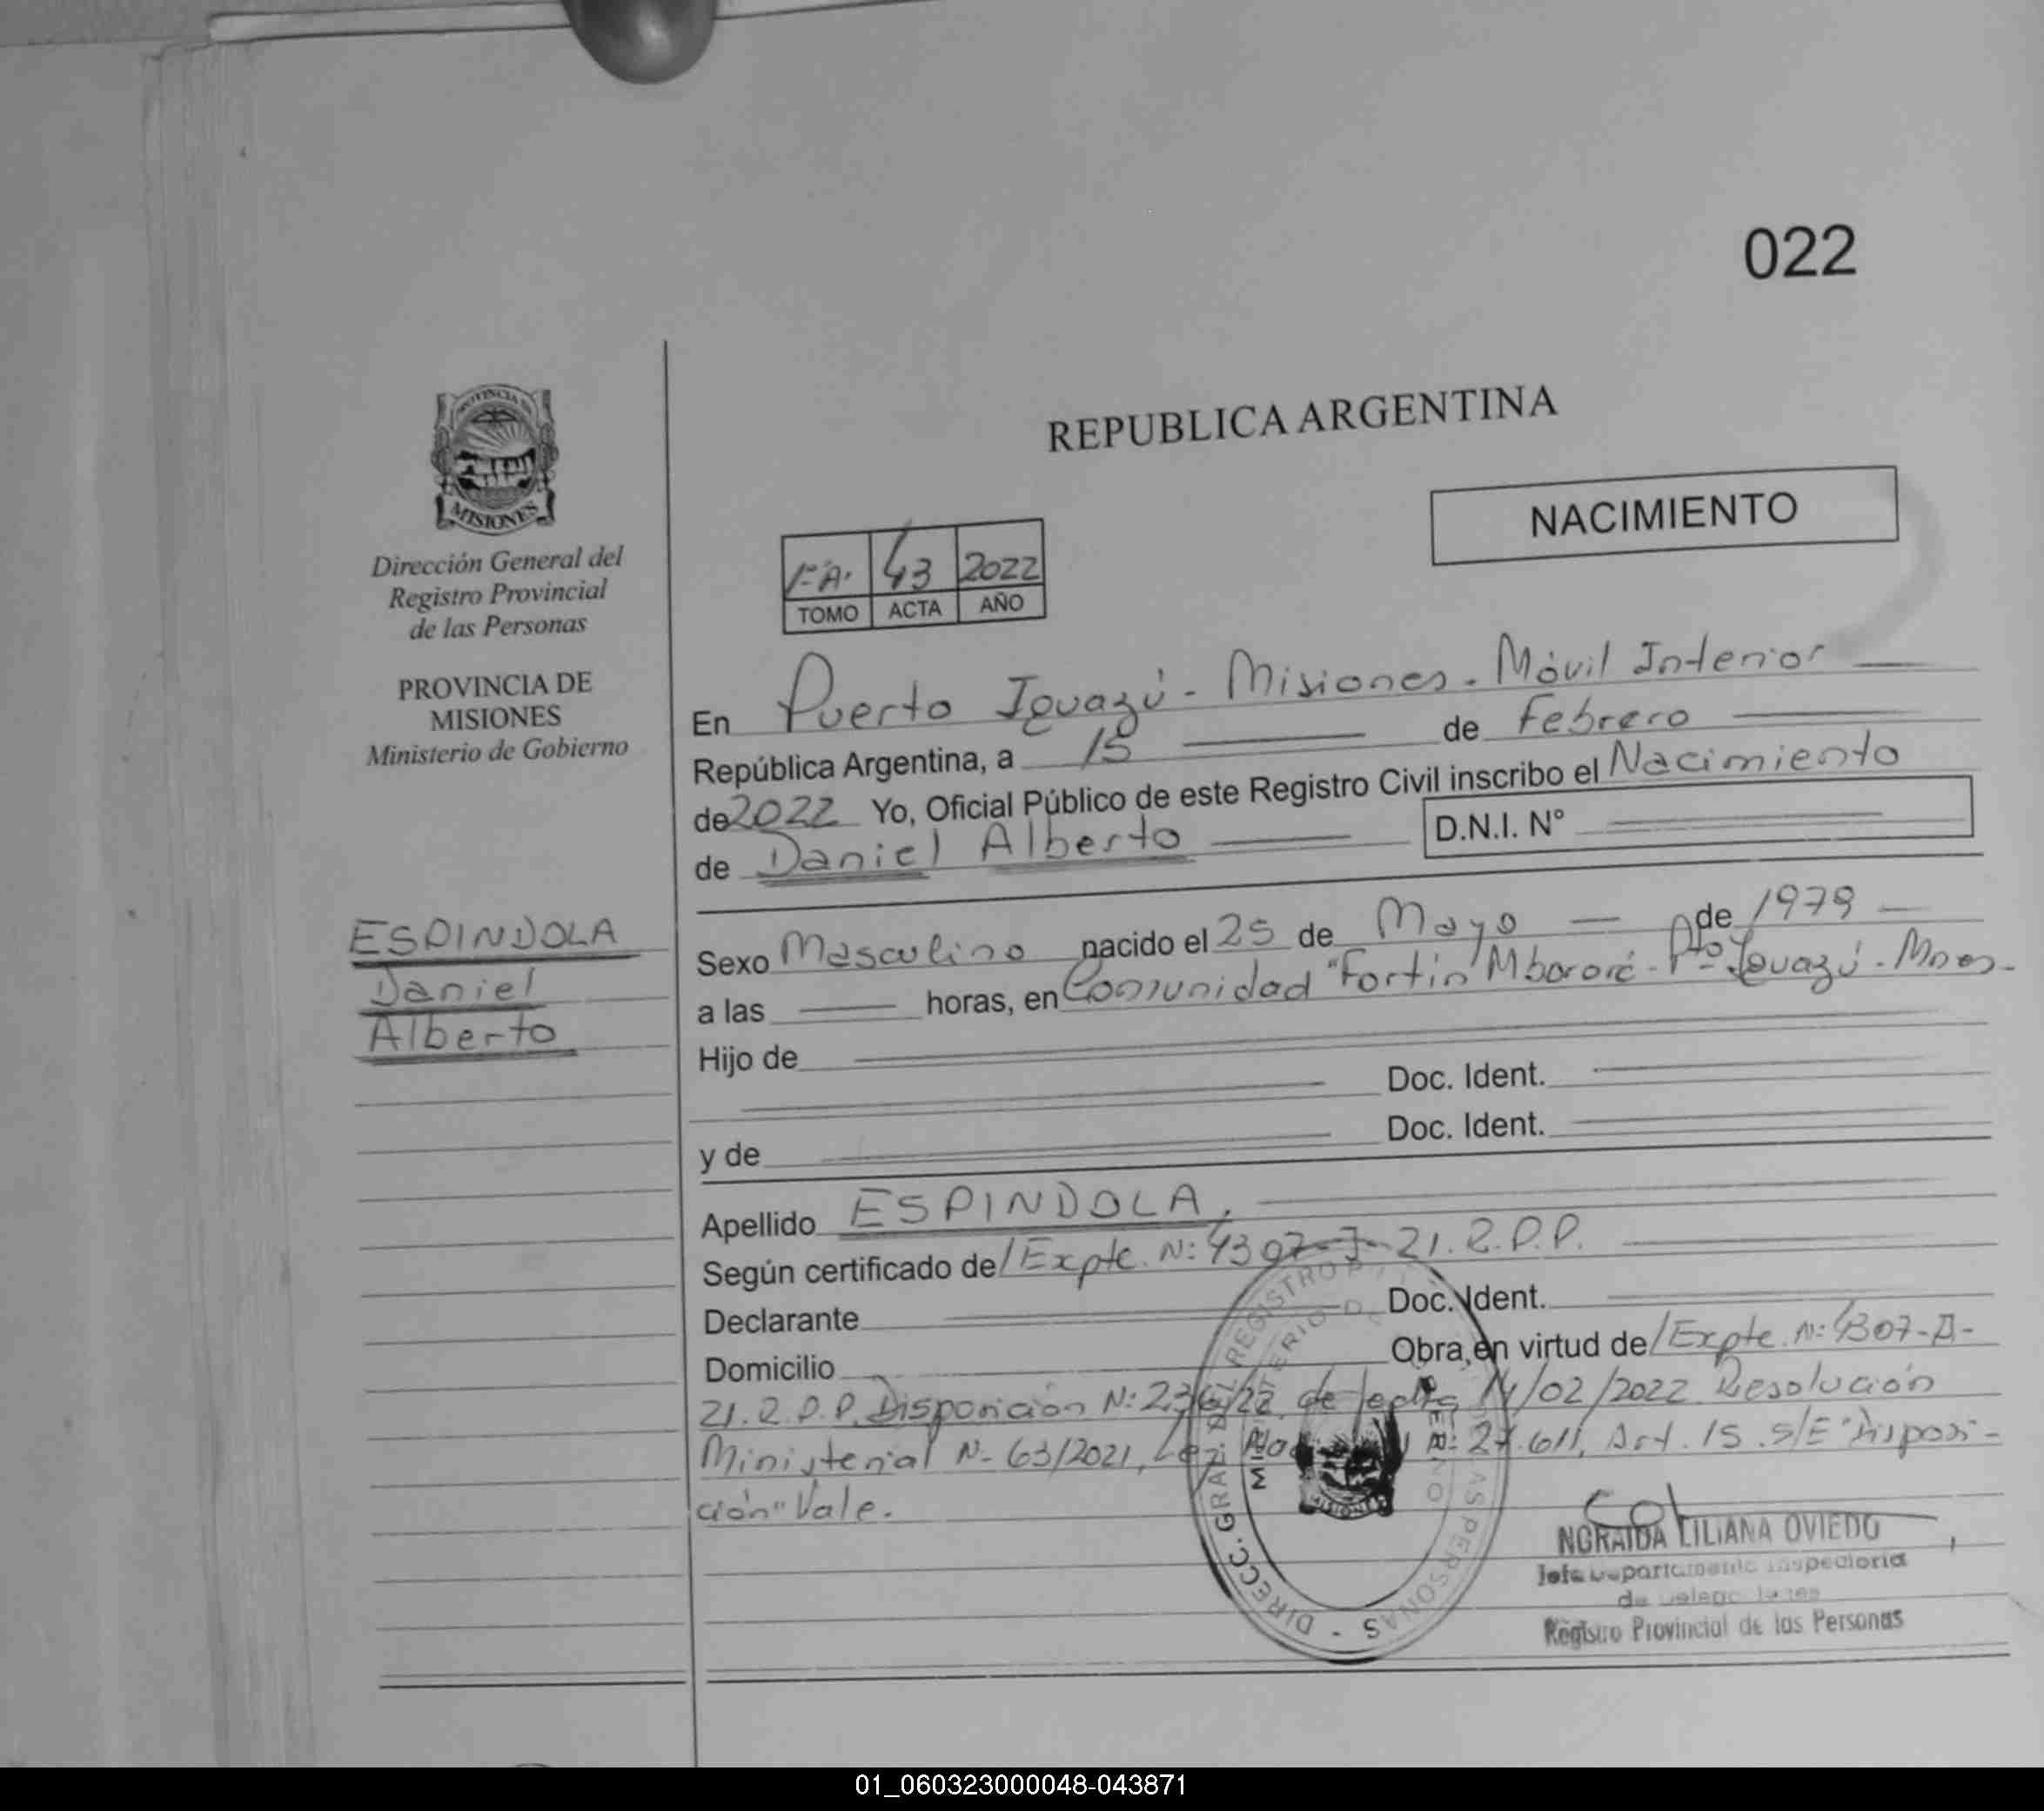 022
REPUBLICA ARGENTINA
NACIMIENTO
PROVINCIA DE
MISIONES
Dirección General del
Registro Provincial
de las Personas
PROVINCIA DE
MISIONES
Ministerio de Gobierno
43 2022
TOMO ACTA AÑO
En Puerto Iguazú - Misiones - Móvil Interior
República Argentina, a 15 de Febrero
de 2022 Yo, Oficial Público de este Registro Civil inscribo el Nacimiento
de Daniel Alberto D.N.I. N°
ESPINDOLA
Daniel
Alberto
Sexo Masculino nacido el 25 de Mayo de 1979
a las horas, en Comunidad "Fortín Mbororé - Pto Iguazú - Mnes.
Hijo de
Doc. Ident.
y de Doc. Ident.
Apellido ESPINDOLA.
Según certificado de/ Expte. N: 4307 21. R.P.P.
Declarante Doc. Ident.
Domicilio Obra, en virtud de/ Expte. N: 4307-A-
21. R.P.P. Disposición N: 236/22 de fecha 14/02/2022 Resolución
Ministerial N- 63/2021, Ley N: 27.611, Art. 15. S/E "Disposi-
ción" Vale.
DIRECC. GRAL. DEL REGISTRO LAS PERSONAS -
MISIONES
NORAIDA LILIANA OVIEDO
Jefa Departamento Inspectoria
de
Registro Provincial de las Personas
01_060323000048-043871